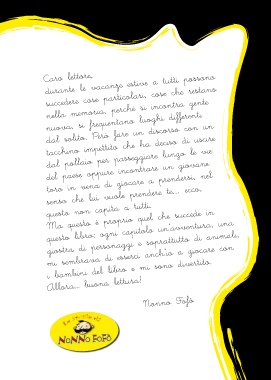 Caro lettore,
durante le vacanze estive a tutti possono
succedere cose particolari, cose che restano
nella memoria, perché si incontra gente
nuova, si frequentano luoghi differenti
dal solito. Però fare un discorso con un
tacchino impettito che ha deciso di uscire
dal pollaio per passeggiare lungo le vie
del paese oppure incontrare un giovane
toro in vena di giocare a prendersi, nel
senso che lui vuole prendere te... ecco,
questo non capita a tutti.
Ma questo è proprio quel che succede in
questo libro: ogni capitolo un'avventura, una
giostra di personaggi e soprattutto di animali,
mi sembrava di esserci anch'io a giocare con
i bambini del libro e mi sono divertito.
Allora... buona lettura!
Nonno Fofò
NONNO FOFÒ